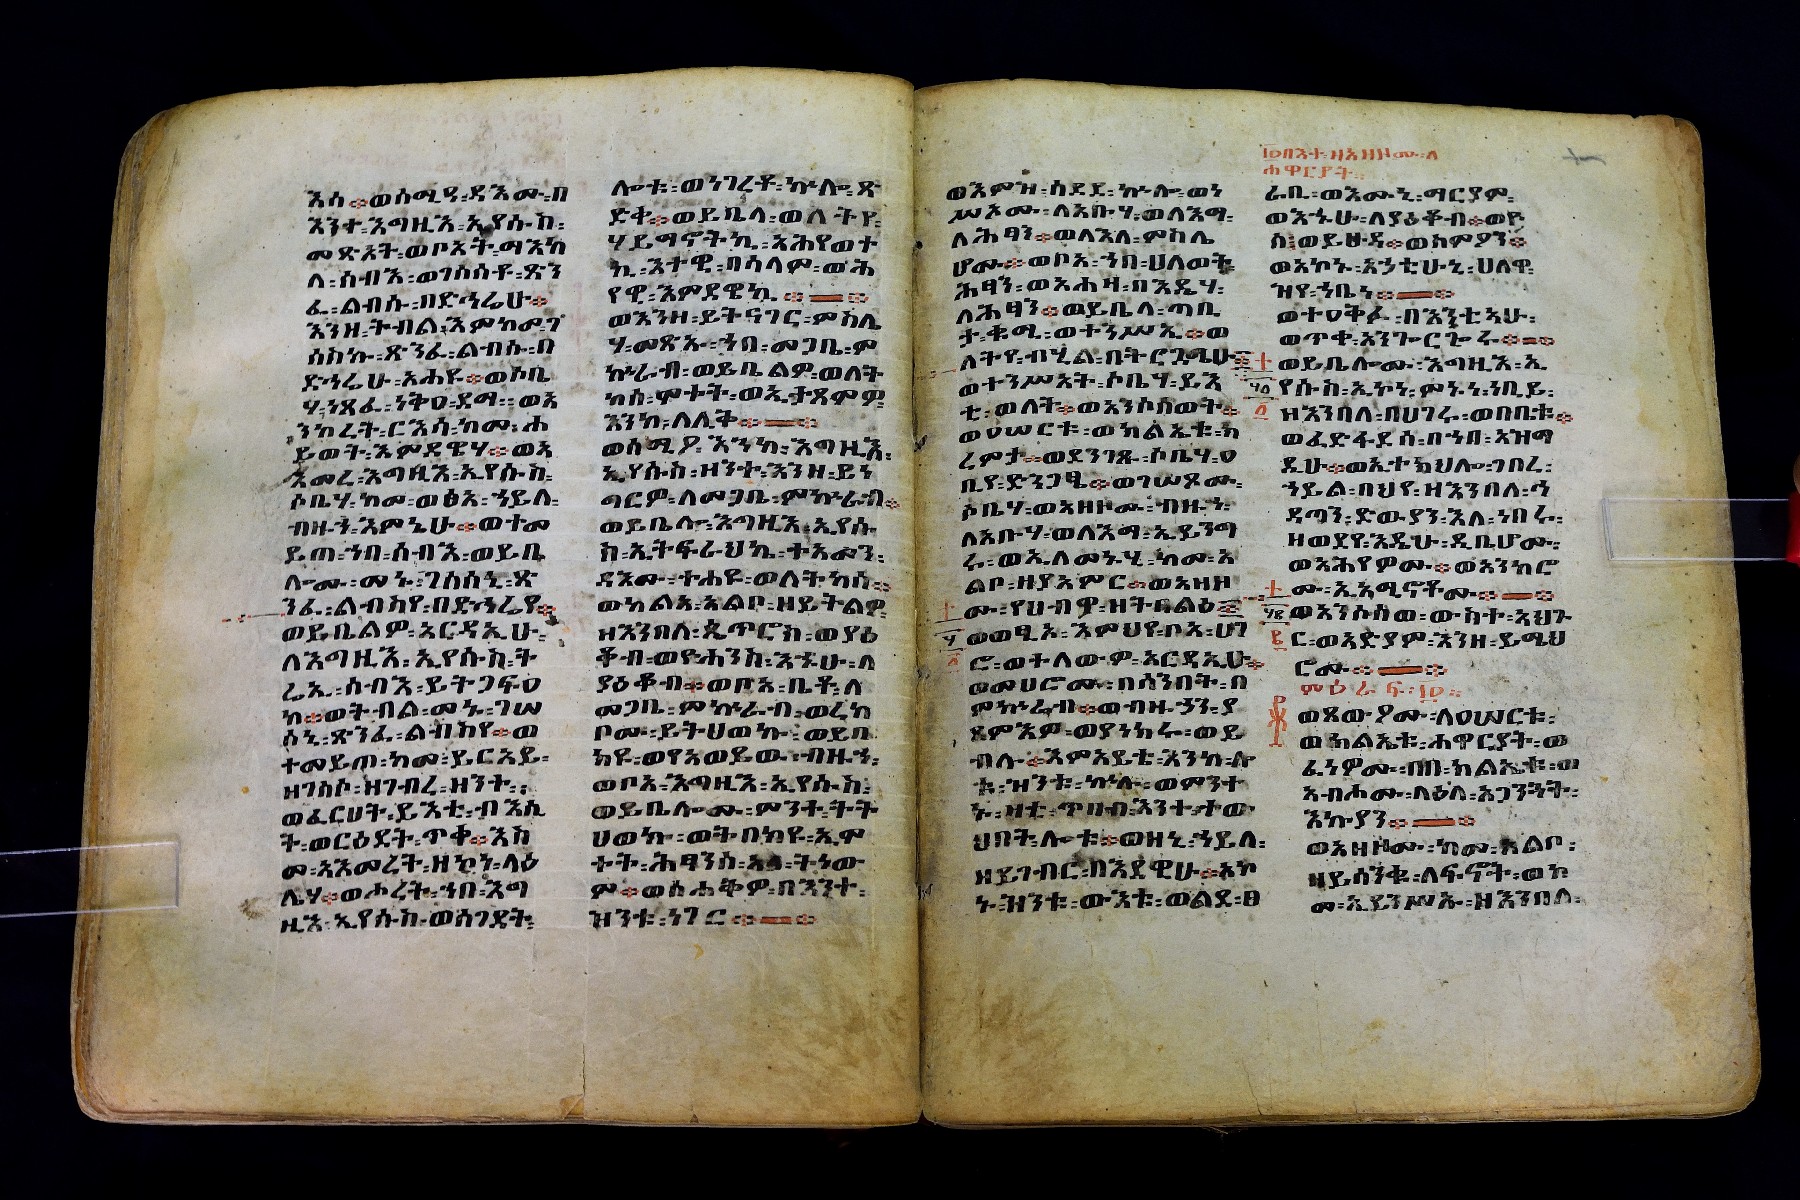 እሳ ። ወሰሚዓ ዳእሙ ፡ በ
እንተ ፡ እግዚእ ፡ ኢየሱስ ፡
መጽአት ፡ ወቦአት ፡ ማእከ
ለ ፡ ሰብእ ፡ ወገሰሰዮ ፡ ጽን
ፈ ፡ ልብሱ ፡ በድኅሬሁ ።
እንዘ ፡ ትብል ፡ እምከመ ፡ ገ
ሰስኩ ፡ ጽንፈ ፡ ልብሱ ፡ በ
ድኅሬሁ ፡ አሐዩ ። ወሶቤ
ሃ ፡ ነጸፈ ፡ ነቅዐ ፡ ደማ ፡ ወአ
ንከረት ፡ ርእሳ ፡ ከመ ፡ ሐ
ይወት ፡ እምደዌሃ ። ወአ
እመረ ፡ እግዚእ ፡ ኢየሱስ ፡
ሶቤሃ ፡ ከመ ፡ ወፅአ ፡ ኀይል ፡
ብዙኅ ፡ እምኔሁ ። ወተመ
ይጠ ፡ ኀበ ፡ ሰብእ ፡ ወይቤ
ሎሙ ፡ መኑ ፡ ገሰሰኒ ፡ ጽ
ንፈ ፡ ልብስየ ፡ በድኅሬየ ።
ወይቤልዎ ፡ አርዳኢሁ ፡
ለእግዚእ ፡ ኢየሱስ ፡ ት
ሬኢ ፡ ሰብእ ፡ ይትጋፍዐ
ከ ። ወትብል ፡ መኑ ፡ ገሠ
ሰኒ ፡ ጽንፈ ፡ ልብስየ ። ወ
ተመይጠ ፡ ከመ ፡ ይርአይ ፡
ዘገሰሶ ፡ ዘገብረ ፡ ዘንተ ፡
ወፈርሀት ፡ ይእቲ ፡ ብእሲ
ት ፡ ወርዕደት ፡ ጥቀ ። እስ
መ ፡ አእመረት ፡ ዘኮነ ፡ ላዕ
ሌሃ ። ወሖረት ፡ ኀበ ፡ እግ
ዚእ ፡ ኢየሱስ ፡ ወሰገደት ፡
ሎቱ ፡ ወነገረቶ ፡ ኵሎ ፡ ጽ
ድቀ ። ወይቤላ ፡ ወለትየ ፡
ሃይማኖትኪ ፡ አሕየወተ
ኪ ፡ እተዊ ፡ በሰላም ፡ ወሕ
የዊ ፡ እምደዌኪ ።
ወእንዘ ፡ ይትናገር ፡ ምስሌ
ሃ ፡ መጽኡ ፡ ኀበ ፡ መጋቤ ፡ ም
ኵራብ ፡ ወይቤልዎ ፡ ወለት
ከሰ ፡ ሞተት ፡ ወኢታጻምዎ
እንከ ፡ ለሊቅ ።
ወሰሚዖ ፡ እንከ ፡ እግዚእ ፡
ኢየሱስ ፡ ዘንተ ፡ እንዘ ፡ ይነ
ግርዎ ፡ ለመጋቤ ፡ ምኵራብ ።
ወይቤሎ ፡ እግዚእ ፡ ኢየሱ
ስ ፡ ኢትፍራህኬ ፡ ተአመን ፡
ዳእሙ ፡ ተሐዩ ፡ ወለትከሰ ።
ወከልአ ፡ አልቦ ፡ ዘይትልዎ
ዘእንበለ ፡ ጴጥሮስ ፡ ወያዕ
ቆብ ፡ ወዮሐንስ ፡ እኁሁ ፡ ለ
ያዕቆብ ። ወቦአ ፡ ቤቶ ፡ ለ
መጋቤ ፡ ምኵራብ ፡ ወረከ
ቦሙ ፡ ይትሀወኩ ፡ ወይበ
ክዩ ፡ ወየአወይው ፡ ብዙኀ ፡
ወቦአ ፡ እግዚእ ፡ ኢየሱስ ፡
ወይቤሎሙ ፡ ምንተ ፡ ትት
ሀወኩ ፡ ወትበክዩ ፡ ኢሞ
ተት ፡ ሕፃንሰ ፡ አላ ፡ ትነው
ም ። ወሰሐቅዎ ፡ በእንተ ፡
ዝንቱ ፡ ነገር ።
ወእምዝ ፡ ሰደደ ፡ ኵሎ ፡ ወነ
ሥኦሙ ፡ ለአቡሃ ፡ ወለእማ ፡
ለሕፃን ። ወለእለ ፡ ምስሌ
ሆሙ ። ወቦአ ፡ ኀበ ፡ ሀለወት ፡
ሕፃን ፡ ወአሐዛ ፡ በእዴሃ ፡
ለሕፃን ። ወይቤላ ፡ ጣቢ
ታ ፡ ቁሚ ፡ ወተንሥኢ ። ወ
ለትየ ፡ ብሂል ፡ በትርጓሜሁ ።
ወተንሥአት ፡ ሶቤሃ ፡ ይእ
ቲ ፡ ወለት ። ወአንሶሰወት ።
ወዐሠርቱ ፡ ወክልኤቱ ፡ ክ
ረምታ ። ወደንገጹ ፡ ሶቤሃ ፡ ዐ
ቢየ ፡ ድንጋፄ ። ወገሠጾሙ ፡
ሶቤሃ ፡ ወአዘዞሙ ፡ ብዙኀ ፡
ለአቡሃ ፡ ወለእማ ፡ ኢይንግ
ሩ ፡ ወኢለመኑሂ ፡ ከመ ፡ አ
ልቦ ፡ ዘያአምር ። ወአዘዘ
ሙ ፡ የሀብዋ ፡ ዘትበልዕ ።
ወወፂኦ ፡ እምህየ ፡ ቦአ ፡ ሀገ
ሮ ፡ ወተለውዎ ፡ አርዳኢሁ ።
ወመሀሮሙ ፡ በሰንበት ፡ በ
ምኵራብ ። ወብዙኃን ፡ ያ
ደምዕዎ ፡ ወያነክሩ ፡ ወይ
ብሉ ። እምአይቴ ፡ እንከ ፡ ሎ
ቱ ፡ ዝንቱ ፡ ኵሉ ፡ ወምንተ
ኑ ፡ ዛቲ ፡ ጥበብ ፡ እንተ ፡ ተው
ህበት ፡ ሎቱ ። ወዘኒ ፡ ኀይለ ፡
ዘይገብር ፡ በእደዊሁ ። አኮ
ኑ ፡ ዝንቱ ፡ ውእቱ ፡ ወልደ ፡ ፀ
፲፬በእንተ ፡ ዘአዘዞሙ ፡ ለ
ሐዋርያት ።
ራቢ ፡ ወእሙኒ ፡ ማርያም ፡
ወእኁሁ ፡ ለያዕቆብ ። ወዮ
ሳ ፡ ወይሁዳ ። ወስምዖን ።
ወአኮኑ ፡ አኃቲሁኒ ፡ ሀለዋ ፡
ዝየ ፡ ኀቤነ ።
ወተዐቅፉ ፡ በእንቲኣሁ ፡
ወጥቀ ፡ አንጐርጐሩ ።
ወይቤሎሙ ፡ እግዚእ ፡ ኢ
የሱስ ፡ ኢኮነ ፡ ምኑነ ፡ ነቢይ ፡
ዘእንበለ ፡ በሀገሩ ፡ ወበቤቱ ።
ወፈድፋደሰ ፡ በኀበ ፡ አዝማ
ዲሁ ። ወኢተክህሎ ፡ ገቢረ ፡
ኀይል ፡ በህየ ፡ ዘእንበለ ፡ ኅ
ዳጣን ፡ ድውያን ፡ እለ ፡ ነበሩ ፡
ዘወደየ ፡ እዴሁ ፡ ዲቤሆሙ ፡
ወአሕየዎሙ ። ወአንከሮ
ሙ ፡ ኢአሚኖቶሙ ።
ወአንሶሰወ ፡ ውስተ ፡ አህጉ
ር ፡ ወአድያም ፡ እንዘ ፡ ይሜህ
ሮሙ ።
ምዕራፍ ፡ ፲፬ ።
ወጸውዖሙ ፡ ለዐሠርቱ ፡
ወክልኤቱ ፡ ሐዋርያት ፡ ወ
ፈነዎሙ ፡ በበ ፡ ክልኤቱ ፡ ወ
አብሖሙ ፡ ላዕለ ፡ አጋንንት ፡
እኩያን ።
ወአዘዞሙ ፡ ከመ ፡ አልቦ ፡
ዘይሰንቁ ፡ ለፍኖት ፡ ወከ
መ ፡ ኢይንሥኡ ፡ ዘእንበለ ፡